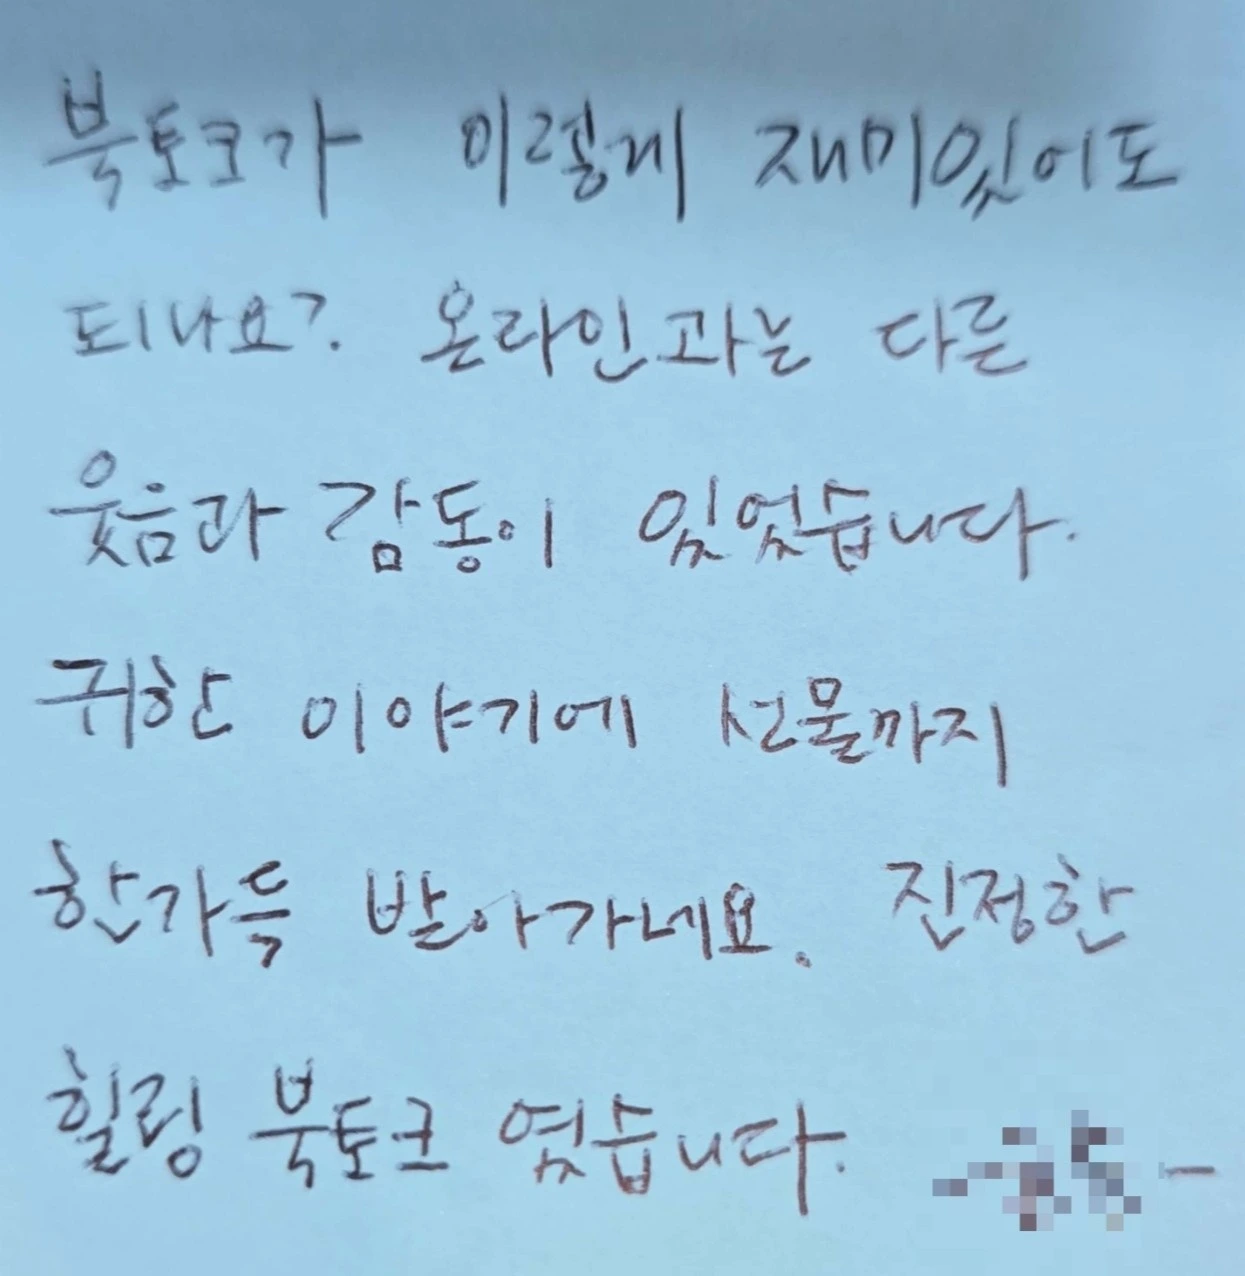 북토크가 이렇게 재미있어도
되나요? 온라인과는 다른
웃음과 감동이 있었습니다.
귀한 이야기에 선물까지
한가득 받아가네요. 진정한
힐링 북토크 였습니다.